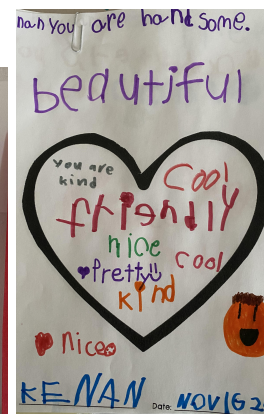 you are handsome.
beautiful
you are
kind
Cool
friendly
nice
pretty
Cool
kind
nice
KENAN
Date: NOV 16 2